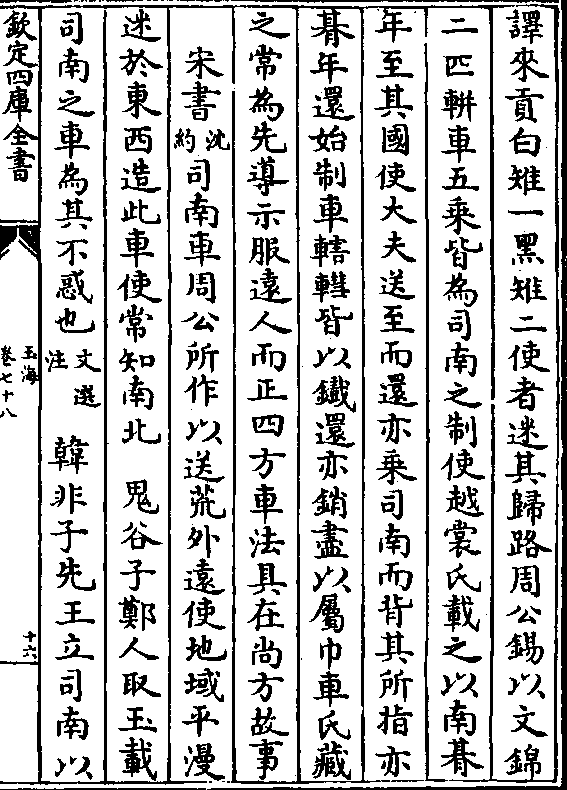 譯來貢白雉一黑雉二使者迷其歸路周公錫以文錦
二匹軿車五乘皆為司南之制使越裳氏載之以南朞
年至其國使大夫送至而還亦乘司南而背其所指亦
朞年還始制車轄轊皆以鐵還亦銷盡以屬巾車氏藏
之常為先導示服遠人而正四方車法具在尚方故事
宋書沈約司南車周公所作以送荒外遠使地域平漫
迷於東西造此車使常知南北　鬼谷子鄭人取玉載
司南之車為其不惑也文選注　韓非子先王立司南以
欽定四庫全書
玉海
卷七十八
十六